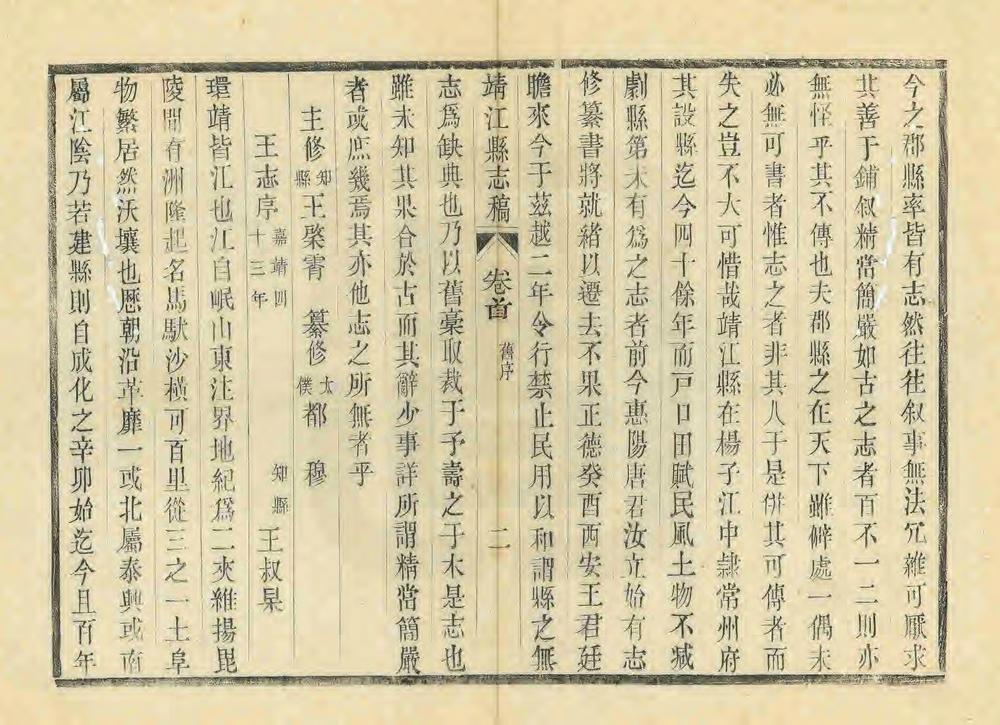 今之郡縣率皆有志然往往叙事無法冗雜可厭求
其善于鋪叙精當簡嚴如古之志者百不一二則亦
無怪乎其不傳也夫郡縣之在天下雖僻處一偶未
必無可書者惟志之者非其人于是併其可傳者而
失之豈不大可惜哉靖江縣在楊子江中隷常州府
其設縣迄今四十餘年而戸口田賦民風土物不减
劇縣第未有爲之志者前令惠陽唐君汝立始有志
修纂書將就緒以遷去不果正德癸酉西安王君廷
瞻來令于茲越二年令行禁止民用以和謂縣之無
靖江縣志稿 卷首 舊序 二
志爲缺典也乃以舊稾取裁于予壽之于木是志也
雖未知其果合於古而其辭少事詳所謂精當簡嚴
者或庶幾焉其亦他志之所無者乎
主修知縣王棨霄 纂修太僕都 穆
王志序嘉靖四十三年 知縣王叔杲
環靖皆江也江自岷山東注界地紀爲二夾維揚毘
陵間有洲隆起名馬馱沙橫可百里從三之一土阜
物繁居然沃壤也歷朝沿革靡一或北屬泰興或南
屬江陰乃若建縣則自成化之辛卯始迄今且百年